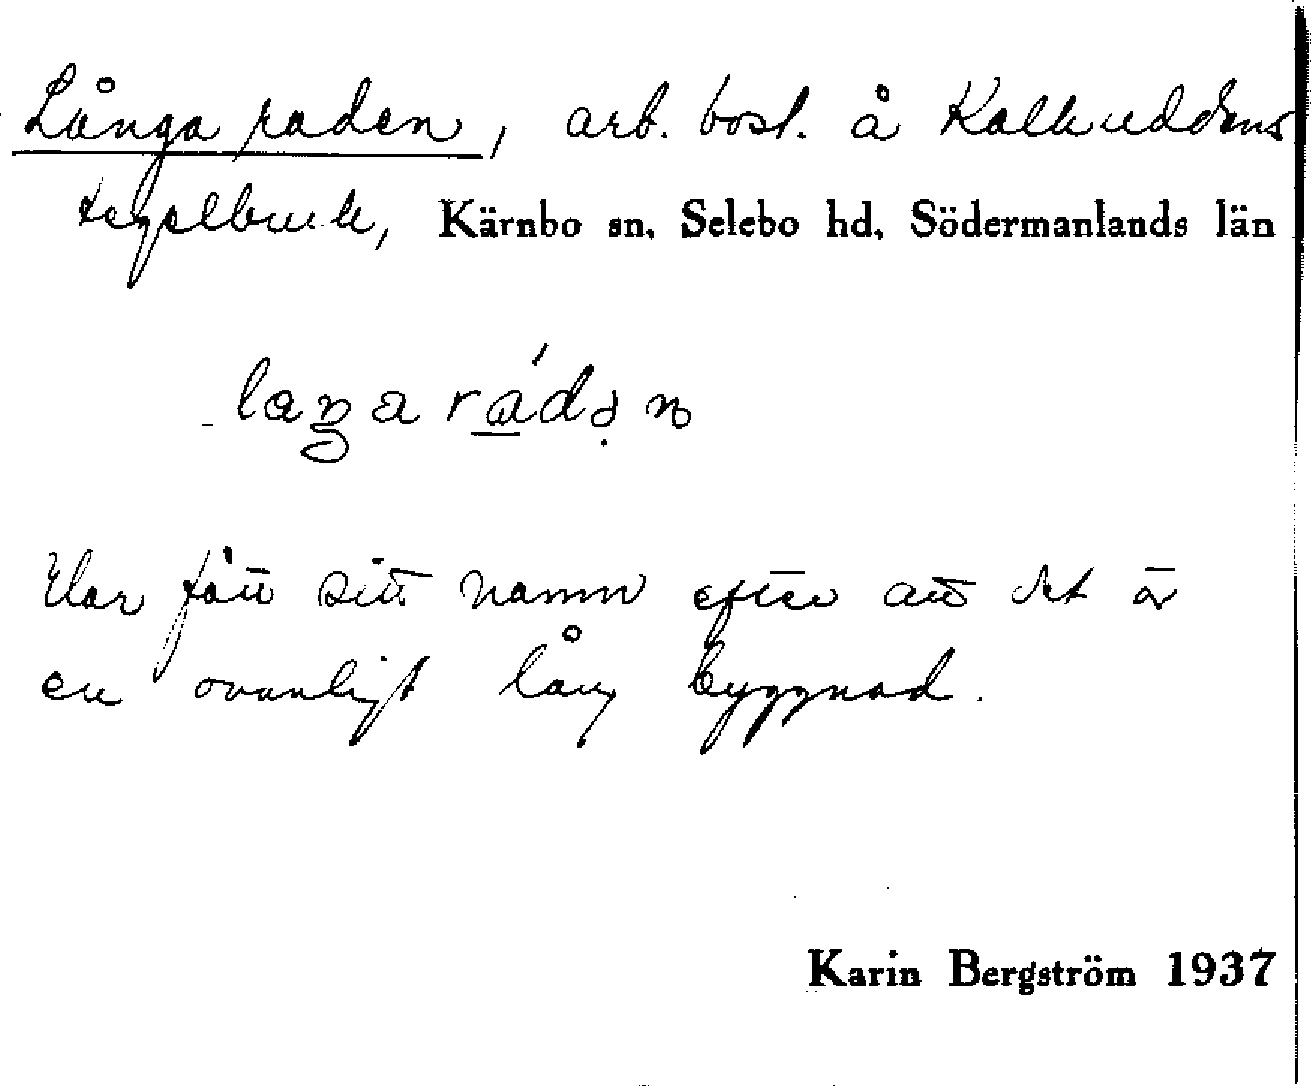 Långa raden, arb. bost. å Kalkuddens
tegelbruk, Kärnbo sn, Selebo hd, Södermanlands län
Har fått sitt namn efter att det är
en ovanligt lång byggnad.
Karin Bergström 1937